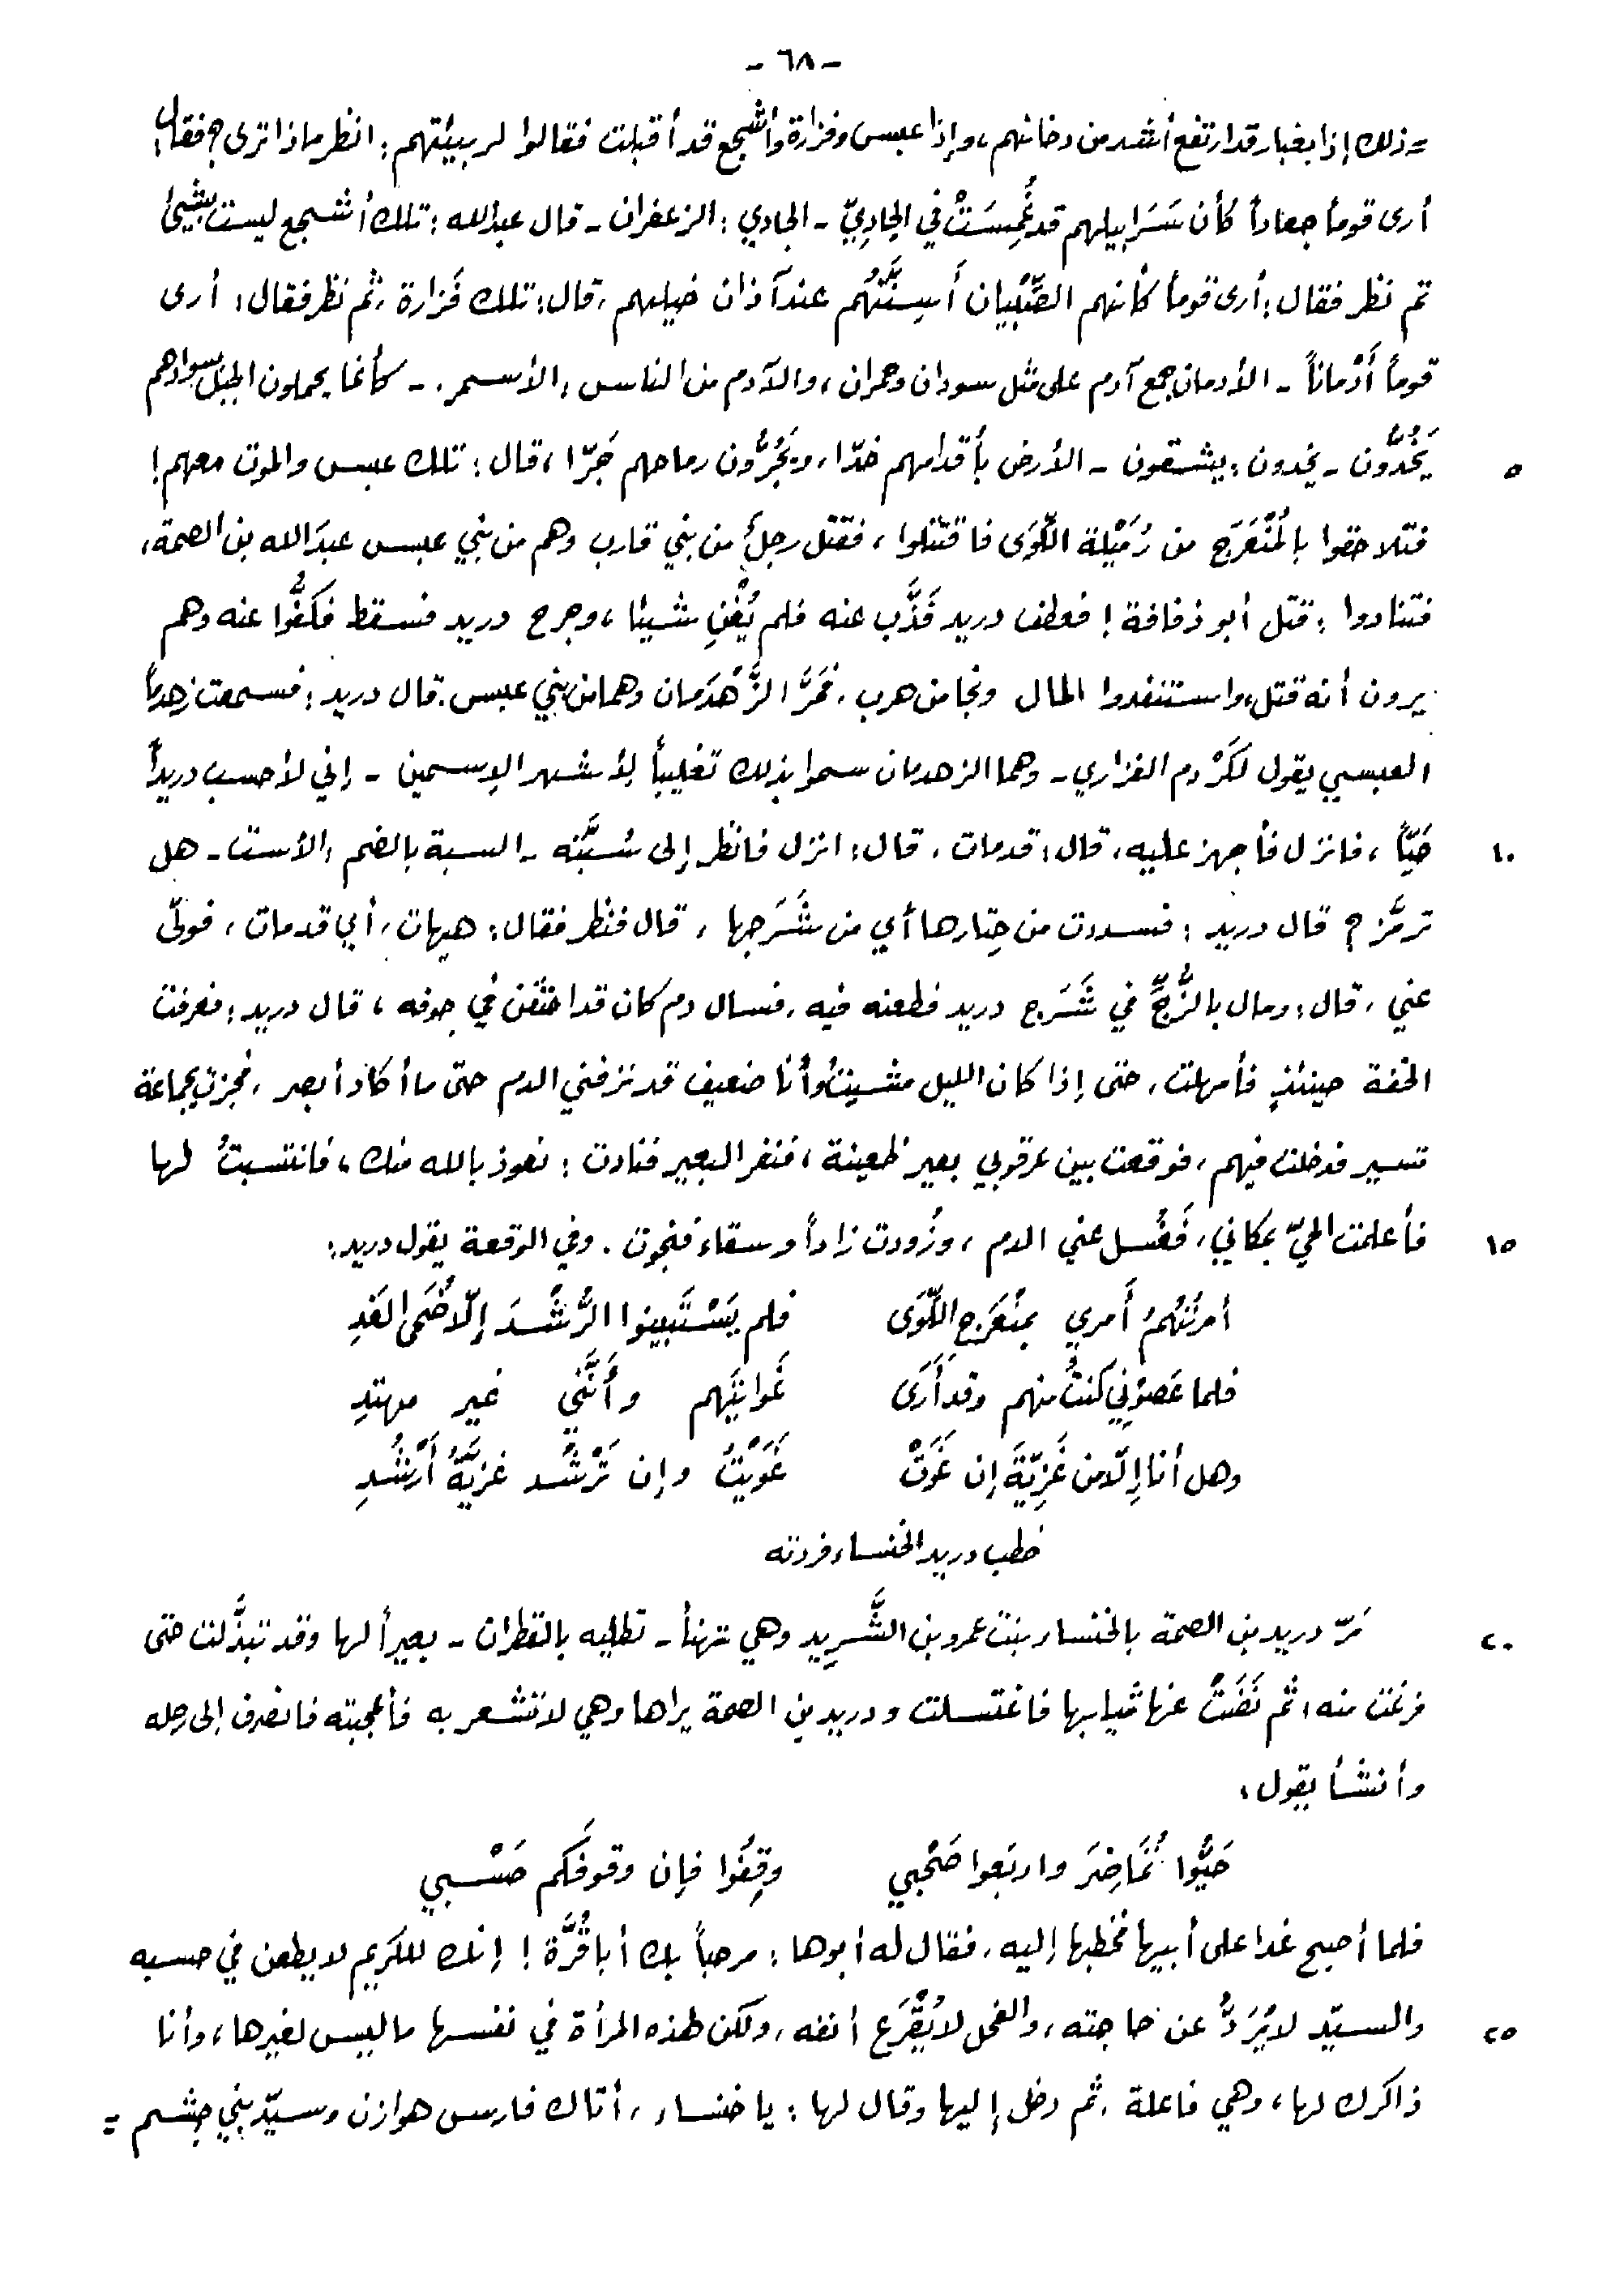 - ٦٨ -
= ذلك إذا بغبار قد ارتفع أشد من دخانهم، وإذا عبس وفزارة وأشجع قد أقبلت فقالوا لربيئتهم: انظر ماذا ترى؟ فقال:
أرى قوماً جعاداً كأن سَرَابيلهم قد غُمِسَتْ في الجادِيّ - الجادي: الزعفران - قال عبدالله: تلك أشجع ليست بشيئ
ثم نظر فقال: أرى قوماً كأنهم الصِّبْيان أَسِنَّتُهُم عند آذان خيلهم، قال: تلك فَزارة، ثم نظر فقال: أرى
قوماً أَدْماناً - الأدمان جمع آدم على مثل سودان وحمران، والآدم من الناس: الأسمر. - كأنما يحملون الجبل بسوادهم
يَخُدُّون - يخدون: يشقون - الأرض بأقدامهم خدّا، ويَجُرُّون رماحهم جَرّا، قال: تلك عبس والموت معهم!
٥
فتلاحقوا بالمُنْعَرَج من رُمَيْلة اللّوَى فاقتتلوا، فقتل رجلٌ من بني قارب وهم من بني عبس عبدَالله بن الصمة،
فتنادوا: قتل أبو ذفافة! فعطف دريد فَذَّب عنه فلم يُغْنِ شيئا، وجرح دريد فسقط فكَفُّوا عنه وهم
يرون أنه قتل، واستنفدوا المال ونجا من هرب، فَمَرَّ الزَّهْدَمان وهما من بني عبس. قال دريد: فسمعت زهدماً
العبسي يقول لكَرْدم الفزاري - وهما الزهدمان سموا بذلك تغليباً لأشهر الاسمين - إني لأحسب دريداً
حَيّاً، فانزل فأجهز عليه، قال: قد مات، قال: انزل فانظر إلى سُبَّته - السبة بالضم: الأست - هل
١٠
ترمَّز؟ قال دريد: فسددت من حِتارها أي من شَرَجها، قال فنظر فقال: هيهات، أي قد مات، فولّى
عني، قال: ومال بالزُّجِّ في شَرَج دريد فطعنه فيه، فسال دم كان قد احتقن في جوفه، قال دريد: فعرفت
الخفة حينئذٍ فأمهلت، حتى إذا كان الليل مشيتُ وأنا ضعيف قد نزفني الدم حتى ما أكاد أبصر، فجزت بجماعة
تسير فدخلت فيهم، فوقعت بين عرقوبي بعير ظعينة، فنفر البعير فنادت: نعوذ بالله منك، فانتسبتُ لها
فأعلمت الحيّ بمكاني، فَغُسل عني الدم، وزُودت زاداً وسقاء فنجوت. وفي الوقعة يقول دريد:
١٥
أمرتُهُمُ أَمري بمنْعَرَجِ اللّوَى فلم يَسْتَبينوا الرُّشْدَ إلّا ضُحَى الغَدِ
فلما عَصوْني كنتُ منهم وقد أَرَى غَوايتَهم وأَنَّني غير مهتدِ
وهل أنا إلّا من غَزِيّةَ إن غَوَتْ غَوَيْتُ وإن تَرْشُد غزيَّةُ أَرْشُدِ
خطب دريد الخنساء فردته
مَرّ دريد بن الصمة بالخنساء بنت عمرو بن الشَّرِيد وهي تهنأ - تطليه بالقطران - بعيراً لها وقد تبذَّلت حتى
٢٠
فرغت منه، ثم نَضَتْ عنها ثيابها فاغتسلت ودريد بن الصمة يراها وهي لا تشعر به فأعجبته فانصرف إلى رحله
وأنشأ يقول:
حَيُّوا تُمَاضِرَ واربَعوا صَحْبي وقِفُوا فإن وقوفَكم حَسْبي
فلما أصبح غدا على أبيها فخطبها إليه، فقال له أبوها: مرحباً بك أبا قُرَّة! إنك للكريم لا يطعن في حسبه
والسيّد لا يُرَدُّ عن حاجته، والفحل لا يُقْرَع أنفه، ولكن لهذه المرأة في نفسها ما ليس لغيرها، وأنا
٢٥
ذاكرك لها، وهي فاعلة، ثم دخل إليها وقال لها: يا خنساء، أتاك فارس هوازن وسيّد بني جشم =